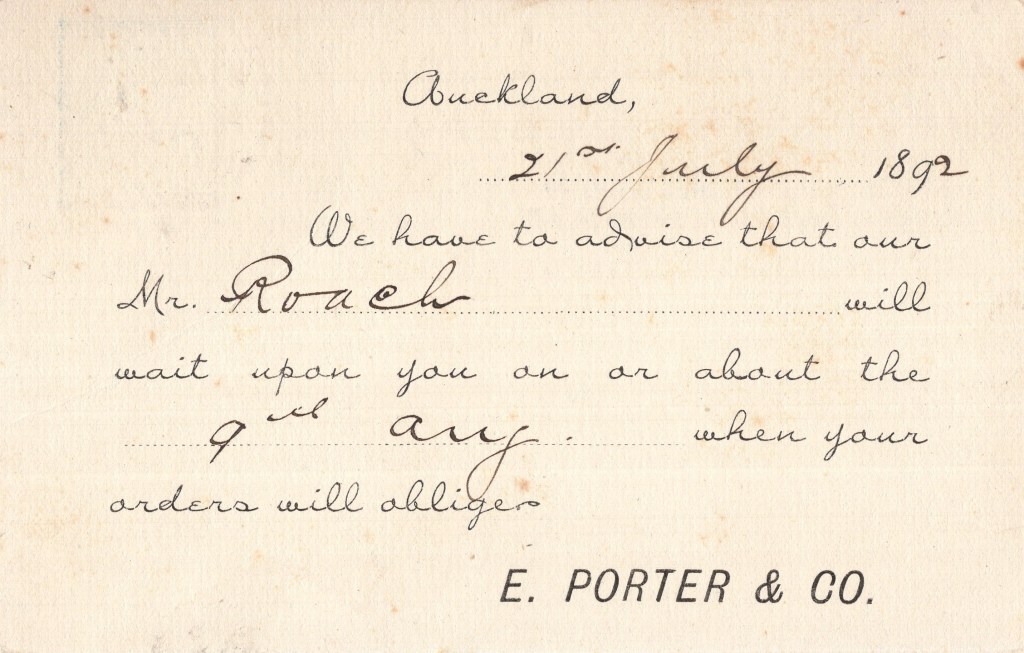 Auckland,
21st July 1892
We have to advise that our
Mr. Roach will
wait upon you on or about the
9th Aug. when your
orders will oblige
E. PORTER & CO.